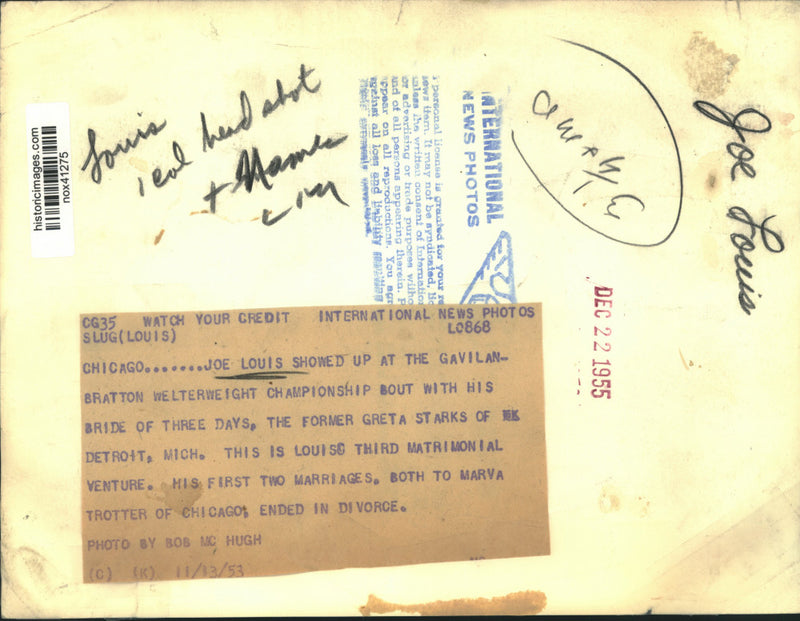 historicimages.com
nox41275
Louis
1 col head shot
+ Names
INTERNATIONAL
NEWS PHOTOS
personal license is granted for your
news item. It may not be syndicated,
unless the written consent of
or advertising or trade purposes
and of all persons appearing therein.
appear on all reproductions. You
against all loss and liability
Joe Louis
DEC 22 1955
CG35 WATCH YOUR CREDIT INTERNATIONAL NEWS PHOTOS
SLUG(LOUIS) LO868
CHICAGO........JOE LOUIS SHOWED UP AT THE GAVILAN-
BRATTON WELTERWEIGHT CHAMPIONSHIP BOUT WITH HIS
BRIDE OF THREE DAYS, THE FORMER GRETA STARKS OF
DETROIT, MICH. THIS IS LOUISG THIRD MATRIMONIAL
VENTURE. HIS FIRST TWO MARRIAGES, BOTH TO MARVA
TROTTER OF CHICAGO, ENDED IN DIVORCE.
PHOTO BY BOB MC HUGH
(C) (K) 11/13/53